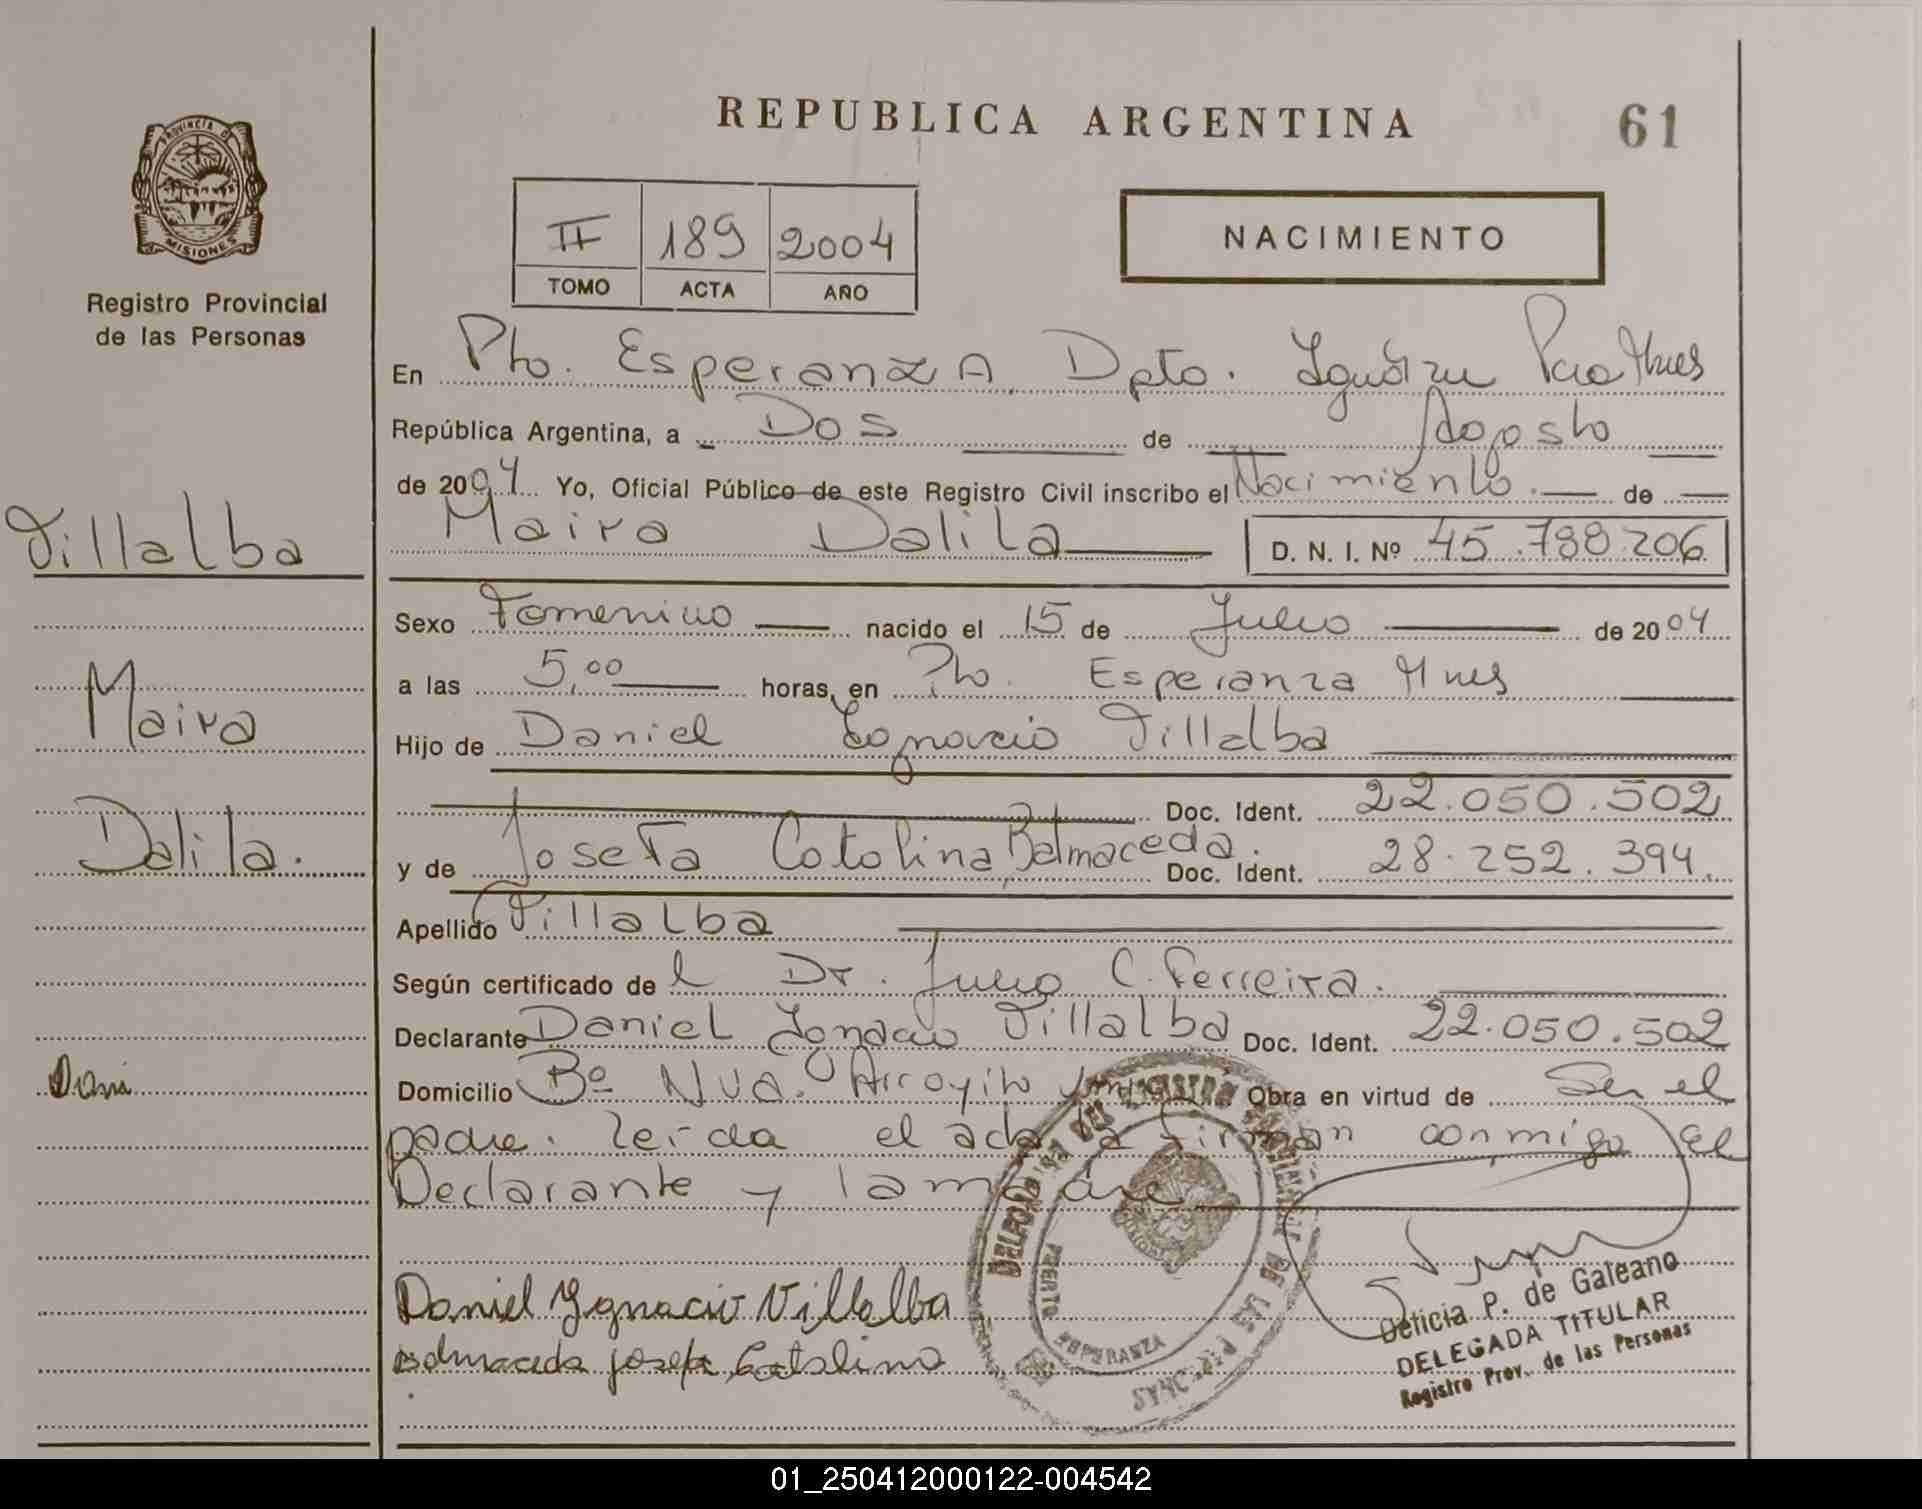 PROVINCIA DE
MISIONES
Registro Provincial
de las Personas
Villalba
Maira
Dalila.
REPUBLICA ARGENTINA
61
II 189 2004
TOMO ACTA AÑO
NACIMIENTO
En Pto. Esperanza Dpto. Iguazu Pcia Mnes
República Argentina, a Dos de Agosto
de 2004 Yo, Oficial Público de este Registro Civil inscribo el Nacimiento. de
Maira Dalila D. N. I. Nº 45.788.206
Sexo Femenino nacido el 15 de Julio de 2004
a las 5,00 horas, en Pto. Esperanza Mnes
Hijo de Daniel Ignacio Villalba
Doc. Ident. 22.050.502
y de Josefa Catalina Balmaceda. Doc. Ident. 28.252.394.
Apellido Villalba
Según certificado del Dr. Julio C. Ferreira.
Declarante Daniel Ignacio Villalba Doc. Ident. 22.050.502
Domicilio Bº Nva. Arroyito Obra en virtud de Ser el
padre. leida el acta la firman conmigo el
Declarante y la madre
Daniel Ygnacio Villalba
Balmaceda Josefa Catalina
DELEGACION DEL REGISTRO PROVINCIAL DE LAS PERSONAS
PUERTO ESPERANZA
Delicia P. de Galeano
DELEGADA TITULAR
Registro Prov. de las Personas
01_250412000122-004542